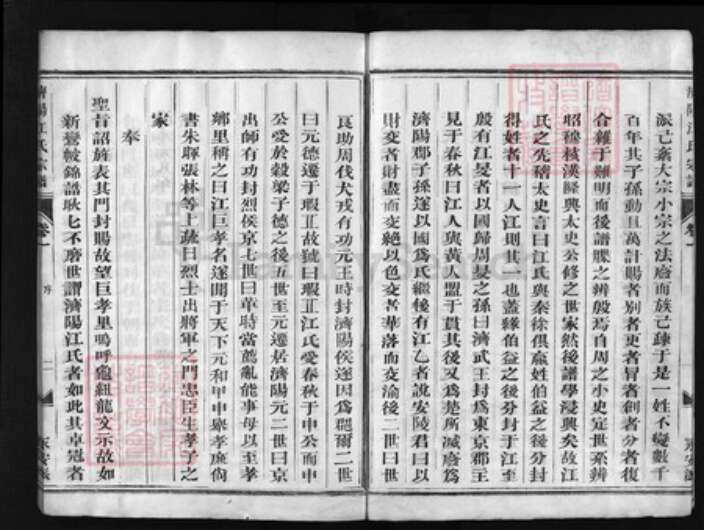 濟陽江氏宗譜
卷一
派已紊大宗小宗之法廢而族已疎于是一姓不變數千
百年其子孫動且萬計賜者別者更者冒者創者分者復
合雜于難明而後譜牒之辨殷焉自周之小史定世系辨
昭穆核漢隊興太史公修之世家然後譜學浸興矣故江
氏之先稽太史言曰江氏與秦徐俱嬴姓伯益之後分封
得姓者十一人江則其一也蓋緣伯益之後分封于江至
殷有江旻者以國歸周旻之孫曰濟武王封爲東京郡王
見于春秋曰江人與黃人盟于貫其後又爲楚所滅廢爲
濟陽郡子孫遂以國爲氏繼後有江乙者說安陵君曰以
財交者財盡而交絕以色交者華落而交渝後二世曰世
東安派
良助周伐犬戎有功元王時封濟陽侯遂因爲爾二世
曰元德遷于瑕丘故號曰瑕丘江氏愛春秋于申公而申
公受於穀梁子德之後五世至元遷居濟陽元二世曰京
出師有功封烈侯京七世曰革時當亂能事母以至孝
鄉里稱之曰江巨孝名遂聞于天下元和甲申舉孝廉尚
書朱暉張林等上疏曰烈士出將軍之門忠臣生孝子之
家
奉
聖旨詔旌表其門封賜故望巨孝里嗚呼龜紐龍文示故如
新鸞帔錦誥耿七不磨世謂濟陽江氏者如此其卓冠者
濟陽江氏宗譜
卷一
序
一
東安派